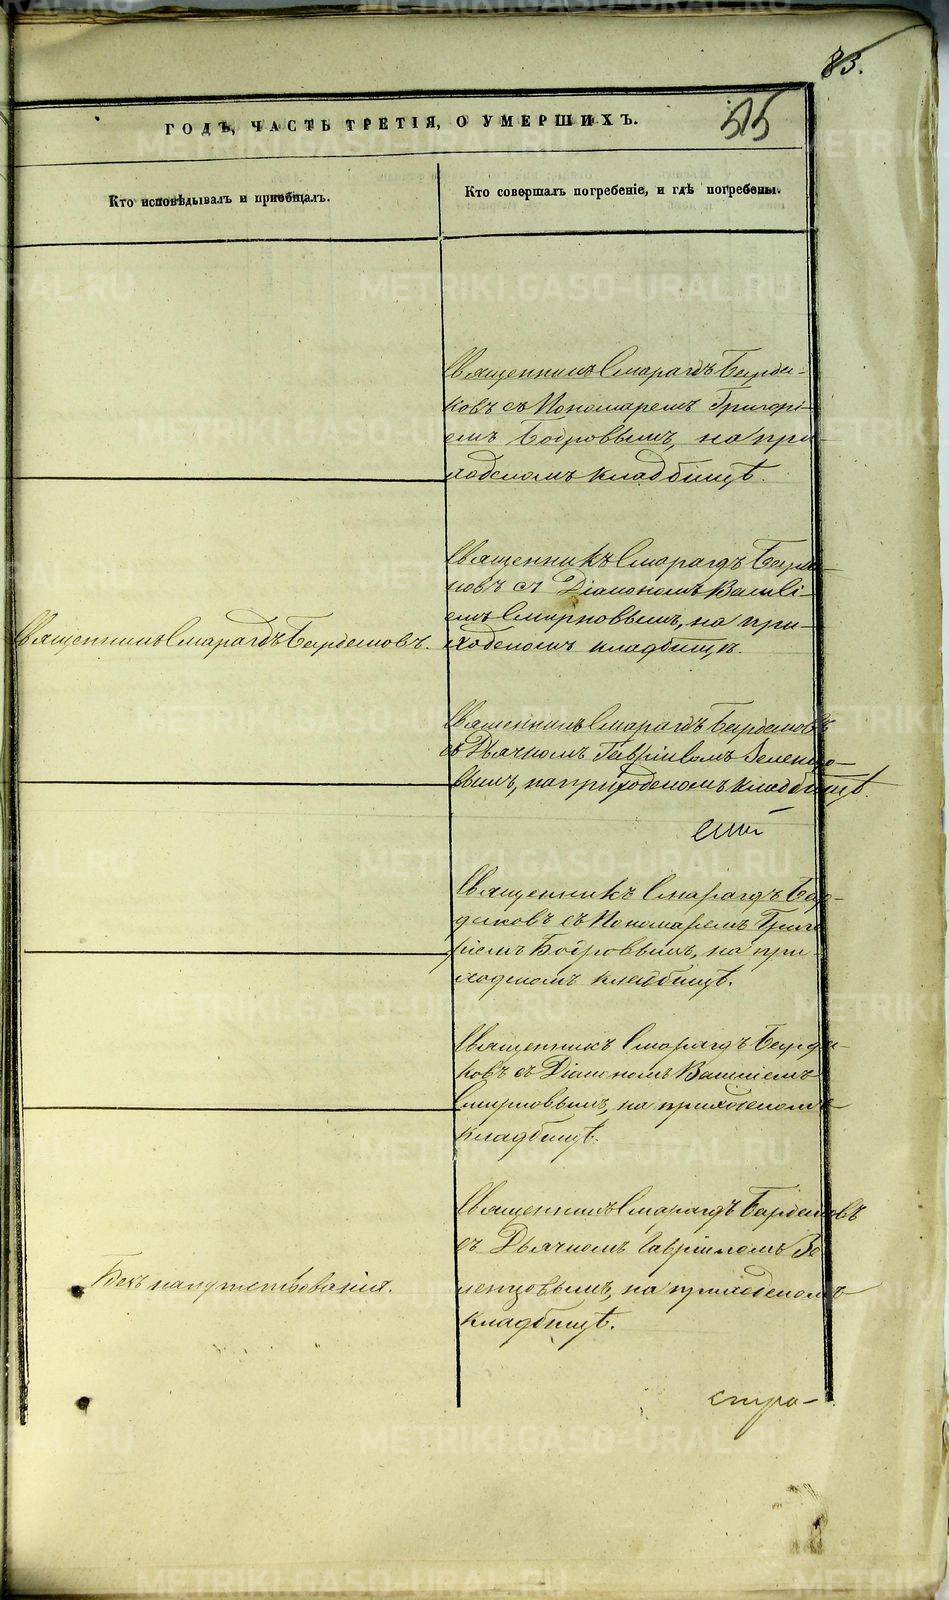 83.
515
ГОДЪ, ЧАСТЬ ТРЕТІЯ, О УМЕРШИХЪ.
Кто исповѣдывалъ и пріобщалъ.
Кто совершалъ погребеніе, и гдѣ погребены.
Священникъ Смарагдъ Бирю-
ковъ съ Пономаремъ Григорі-
емъ Бобровымъ, на при-
ходскомъ кладбищѣ.
Священникъ Смарагдъ
ковъ съ Діакономъ Василі-
емъ Смирновымъ, на при-
ходскомъ кладбищѣ.
Священникъ Смарагдъ
Священникъ Смарагдъ
съ Дьячкомъ Гавріиломъ Зеленцо-
вымъ, на приходскомъ кладбищѣ.
Священникъ Смарагдъ
ковъ съ Пономаремъ Григо
ріемъ Бобровымъ, на при-
ходскомъ кладбищѣ.
Священникъ Смарагдъ
ковъ съ Діакономъ Василіемъ
Смирновымъ, на приходскомъ
кладбищѣ.
Священникъ Смарагдъ
съ Дьячкомъ Гавріиломъ Зе
ленцовымъ, на приходскомъ
кладбищѣ.
Безъ напутствованія.
стра-
METRIKI.GASO-URAL.RU